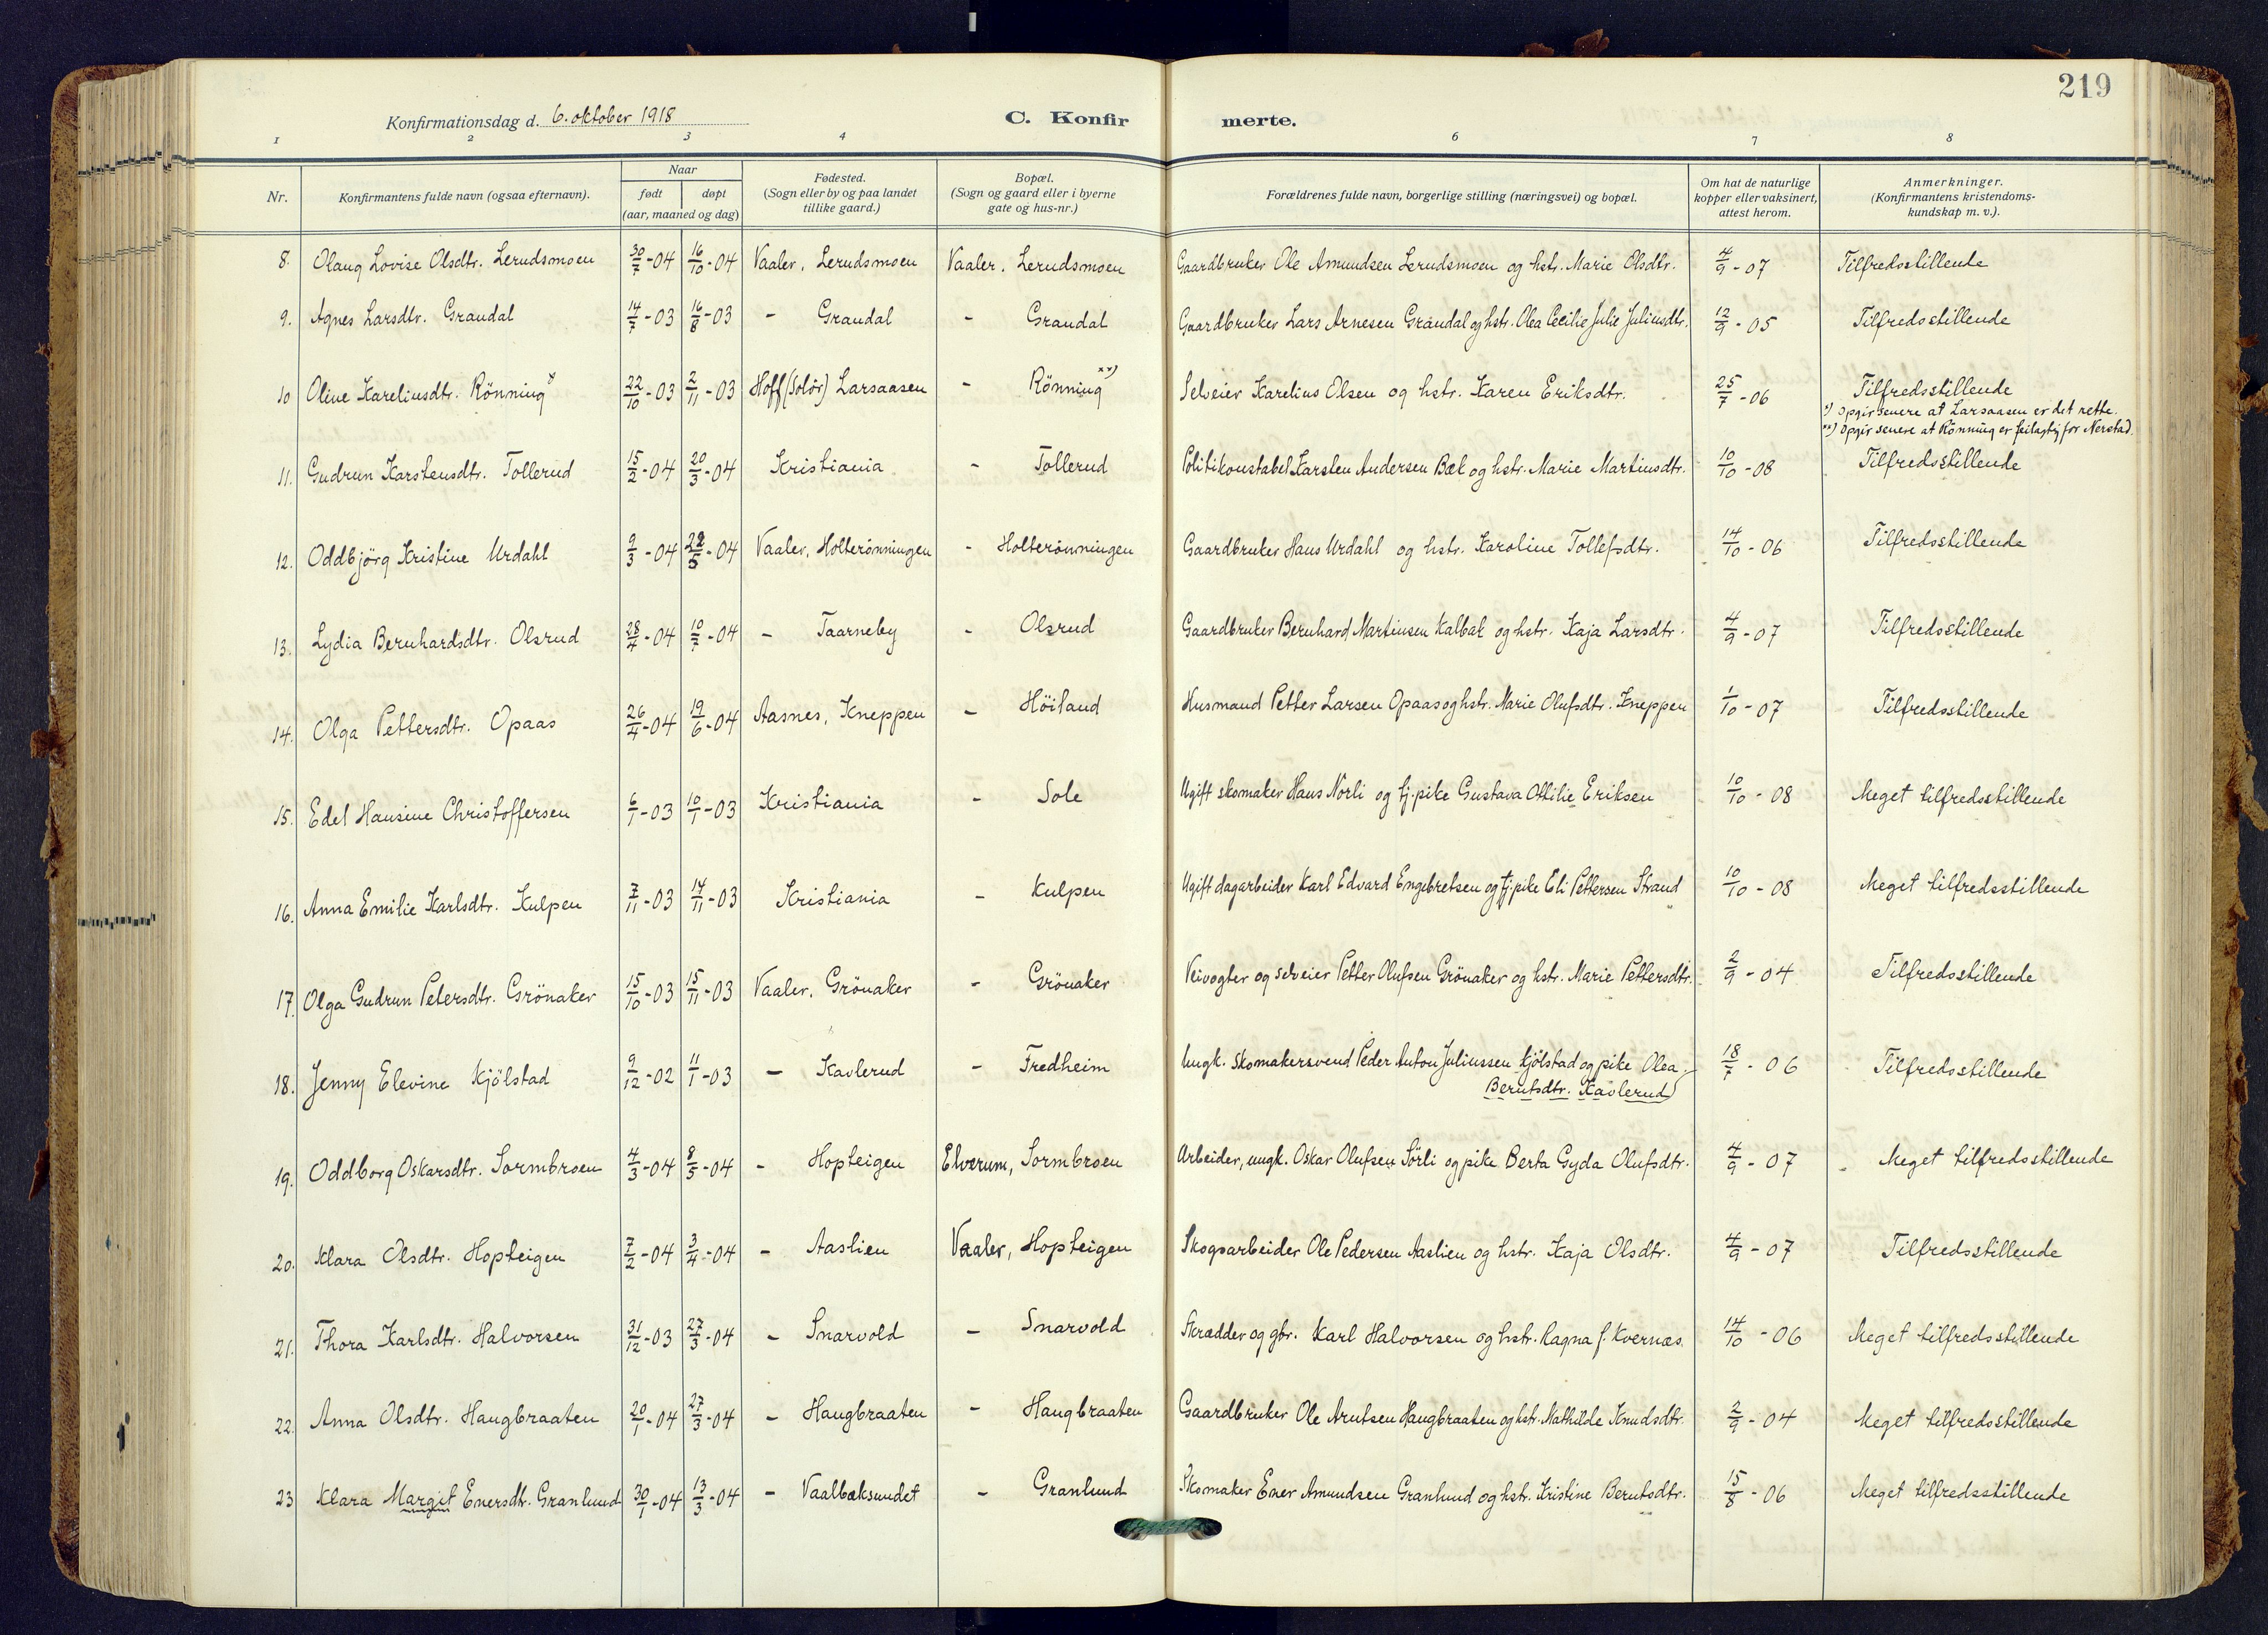 219
Konfirmationsdag d. 6. oktober 1918 C. Konfir merte.
1 2 3 4 6 7 8
Nr. Konfirmantens fulde navn (ogsaa efternavn). Naar født døpt (aar, maaned og dag) Fødested. (Sogn eller by og paa landet tillike gaard.) Bopæl. (Sogn og gaard eller i byerne gate og hus-nr.) Forældrenes fulde navn, borgerlige stilling (næringsvei) og bopæl. Om hat de naturlige kopper eller vaksinert, attest herom. Anmerkninger. (Konfirmantens kristendoms-kundskap m. v.).
8. Olaug Lovise Olsdtr. Lerudsmoen 30/7-04 16/10-04 Vaaler, Lerudsmoen Vaaler, Lerudsmoen Gaardbruker Ole Amundsen Lerudsmoen og hstr. Marie Olsdtr. 4/9-07 Tilfredsstillende
9. Agnes Larsdtr. Graudal 14/7-03 16/8-03 - Graudal - Graudal Gaardbruker Lars Arnesen Graudal og hstr. Olea Cecilie Julie Juliusdtr. 12/9-05 Tilfredsstillende
10 Oline Kareliusdtr. Rönning x) 22/10-03 2/11-03 Hoff (Solör) Larsaasen - Rönning xx) Selveier Karelius Olsen og hstr. Karen Eriksdtr. 25/7-06 Tilfredsstillende
x) Opgir senere at Larsaasen er det rette.
xx) Opgir senere at Rönning er feilagtig for Nerstad.
11. Gudrun Karstensdtr. Tollerud 15/2-04 20/3-04 Kristiania - Tollerud Politikonstabel Karsten Andersen Bæk og hstr. Marie Martinsdtr. 10/10-08 Tilfredsstillende
12. Oddbjörg Kristine Urdahl 9/3-04 22/5-04 Vaaler, Holterönningen - Holterönningen Gaardbruker Hans Urdahl og hstr. Karoline Tollefsdtr. 14/10-06 Tilfredsstillende
13. Lydia Bernhardsdtr. Olsrud 28/4-04 10/7-04 - Taarneby - Olsrud Gaardbruker Bernhard Martinsen Kalbæk og hstr. Kaja Larsdtr. 4/9-07 Tilfredsstillende
14. Olga Pettersdtr. Opaas 26/4-04 19/6-04 Aasnes, Kneppen - Höiland Husmand Petter Larsen Opaas og hstr. Marie Olufsdtr. Kneppen 1/10-07 Tilfredsstillende
15. Edel Hansine Christoffersen 6/1-03 10/1-03 Kristiania - Sole Ugift skomaker Hans Norli og tj.pike Gustava Ottilie Eriksen 10/10-08 Meget tilfredsstillende
16. Anna Emilie Karlsdtr. Kulpen 7/11-03 14/11-03 Kristiania - Kulpen Ugift dagarbeider Karl Edvard Engebretsen og tj.pike Eli Pettersen Strand 10/10-08 Meget tilfredsstillende
17. Olga Gudrun Petersdtr. Grönaker 15/10-03 15/11-03 Vaaler, Grönaker - Grönaker Veivogter og selveier Petter Olufsen Grönaker og hstr. Marie Pettersdtr. 2/9-04 Tilfredsstillende
18. Jenny Elevine Kjölstad 9/12-02 11/1-03 - Kavlerud - Fredheim Ungk. skomakersvend Peder Anton Juliussen Kjölstad og pike Olea
Berntsdtr. Kavlerud 18/7-06 Tilfredsstillende
19. Oddborg Oskarsdtr. Sormbroen 4/3-04 8/5-04 - Hopteigen Elverum, Sormbroen Arbeider, ungk. Oskar Olufsen Sörli og pike Berta Gyda Olufsdtr. 4/9-07 Meget tilfredsstillende
20. Klara Olsdtr. Hopteigen 7/2-04 3/4-04 - Aaslien Vaaler, Hopteigen Skogsarbeider Ole Pedersen Aaslien og hstr. Kaja Olsdtr. 4/9-07 Tilfredsstillende
21. Thora Karlsdtr. Halvorsen 31/12-03 27/3-04 - Snarvold - Snarvold Skrædder og gbr. Karl Halvorsen og hstr. Ragna f. Kvernæs. 14/10-06 Meget tilfredsstillende
22. Anna Olsdtr. Haugbraaten 20/1-04 27/3-04 - Haugbraaten - Haugbraaten Gaardbruker Ole Arntsen Haugbraaten og hstr. Mathilde Knudsdtr. 2/9-04 Meget tilfredsstillende
23 Klara Margit Enersdtr. Granlund 30/1-04 13/3-04 - Vaalbæksundet - Granlund Skomaker Ener Amundsen Granlund og hstr. Kristine Berntsdtr. 15/8-06 Meget tilfredsstillende